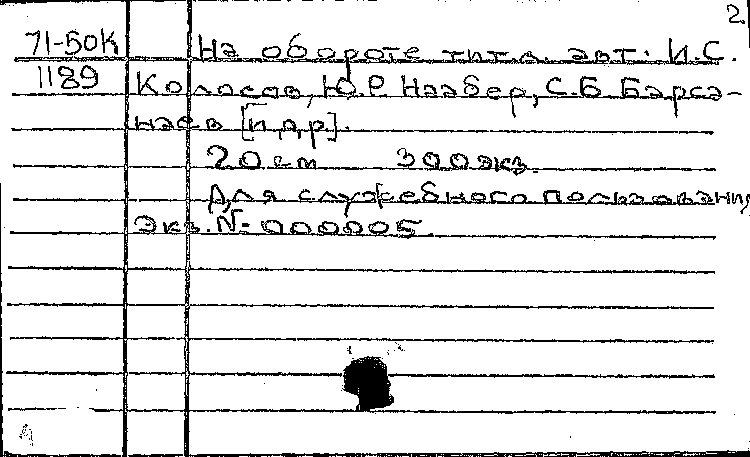 2
71-50К На обороте тит.л. авт. И.С.
1189 Колосов, Ю.Р. Наабер, С.Б. Барса-
наев [и др].
20 см 300 экз.
Для служебного пользования
Экз. № 000005.